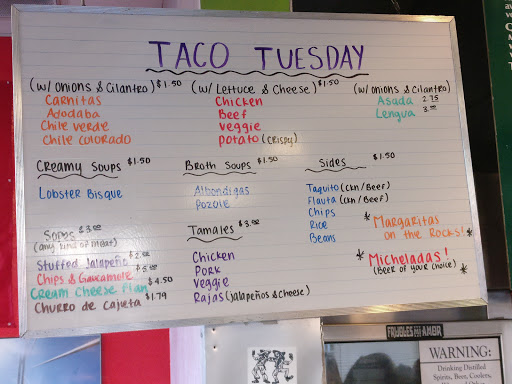 TACO TUESDAY
(w/ onions & Cilantro) $1.50
Carnitas
Adobaba
Chile verde
Chile colorado
(w/ Lettuce & Cheese) $1.50
Chicken
Beef
veggie
potato (crispy)
(w/ onions & Cilantro)
Asada 2.75
Lengua
Creamy Soups $1.50
Lobster Bisque
Broth Soups $1.50
Albondigas
Pozole
Sides $1.50
Taquito (ckn/Beef)
Flauta (ckn/Beef)
Chips
Rice
Beans
Sopes $3.00
(any kind of meat)
Stuffed Jalapeño $2.00
Chips & Guacamole $5.00
Cream Cheese Flan $4.50
Churro de cajeta $1.79
Tamales $3.00
Chicken
Pork
Veggie
Rajas (Jalapeños & Cheese)
* Margaritas
on the Rocks! *
* Micheladas! *
(Beer of your choice)
WARNING:
Drinking Distilled
Spirits, Beer, Coolers,